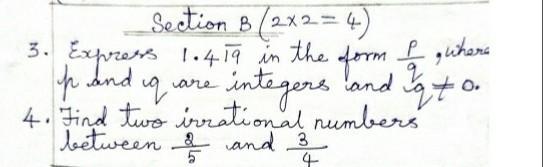 Section B (2×2=4)
3. Express 1.4\overline{19} in the form p/q, where
p and q are integers and q ≠ 0.
4. Find two irrational numbers
between 2/5 and 3/4